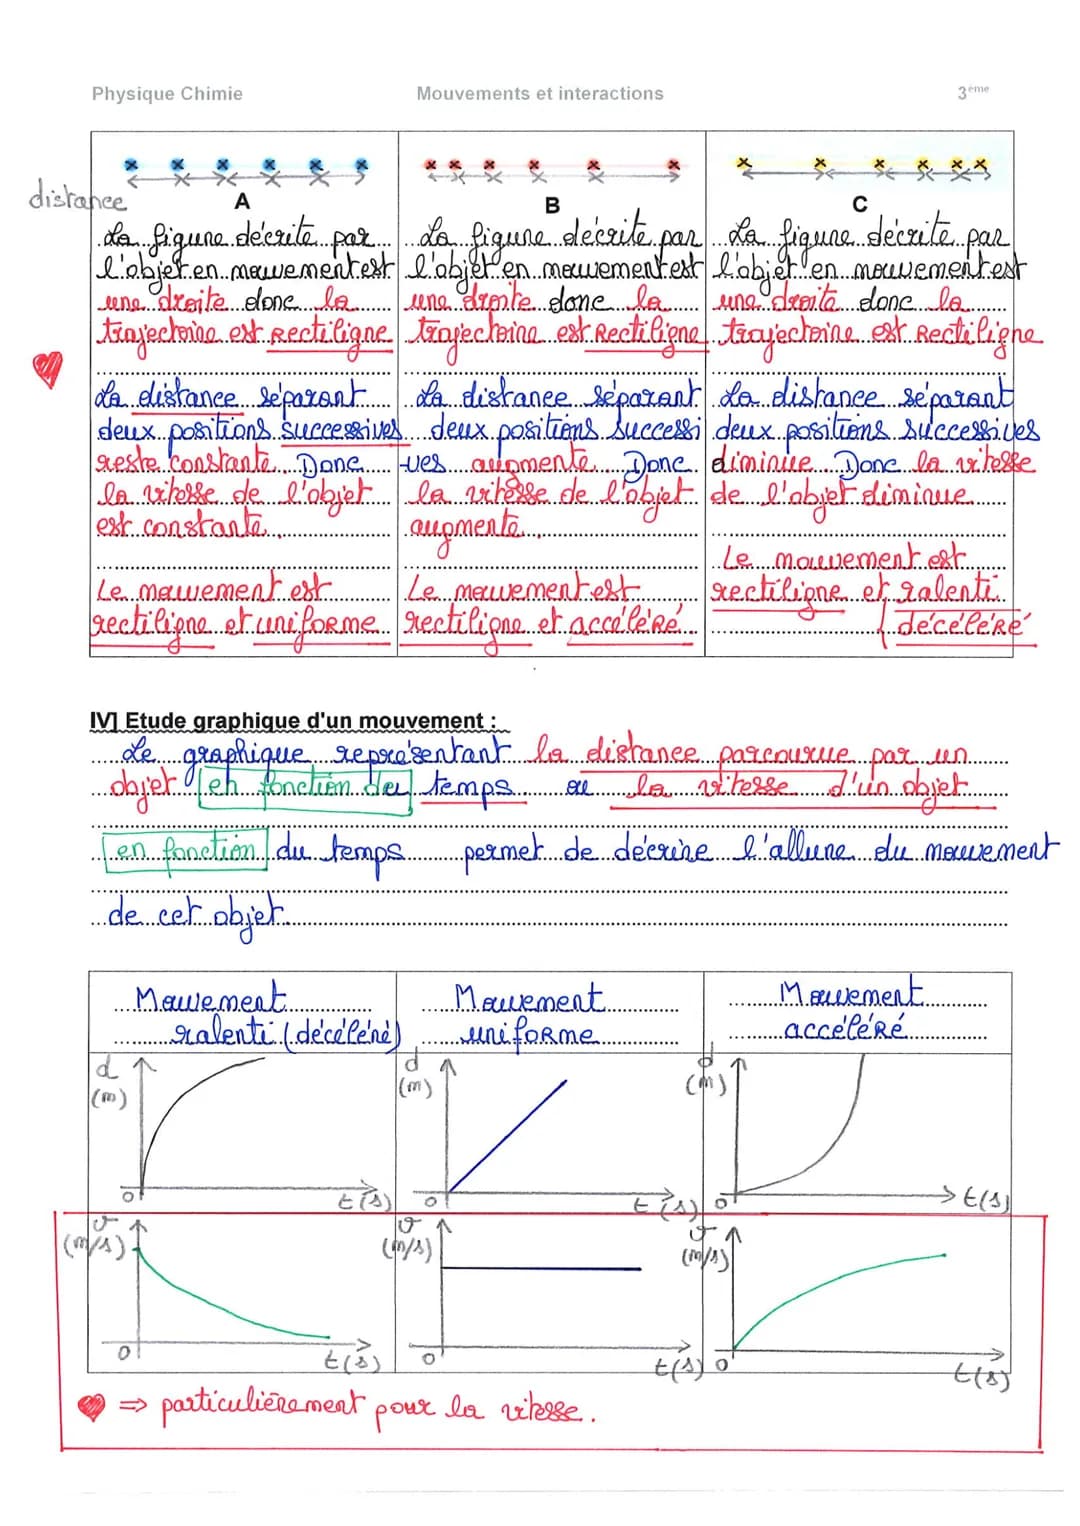 Physique Chimie Mouvements et interactions 3ème
distance
A
La figure décrite par
l'objet en mouvement est
une droite donc la
trajectoire est Rectiligne
La distance séparant
deux positions successives
reste constante. Donc
la vitesse de l'objet
est constante.
Le mouvement est
rectiligne et uniforme
B
La figure décrite par
l'objet en mouvement est
une droite donc la
trajectoire est Rectiligne
La distance séparant
deux positions successi
-ves augmente. Donc
la vitesse de l'objet
augmente.
Le mouvement est
rectiligne et accéléré
C
La figure décrite par
l'objet en mouvement est
une droite donc la
trajectoire est Rectiligne
La distance séparant
deux positions successives
diminue. Donc la vitesse
de l'objet diminue.
Le mouvement est
rectiligne et ralenti
décéléré
IV] Etude graphique d'un mouvement :
Le graphique représentant la distance parcourue par un
objet en fonction du temps ou la vitesse d'un objet
en fonction du temps permet de décrire l'allure du mouvement
de cet objet.
Mouvement
ralenti (décéléré)
Mouvement
uniforme
Mouvement
accéléré
d
(m)
0
t(s)
d
(m)
0
t(s)
d
(m)
0
t(s)
v
(m/s)
0
t(s)
v
(m/s)
0
t(s)
v
(m/s)
0
t(s)
⇒ particulièrement pour la vitesse.